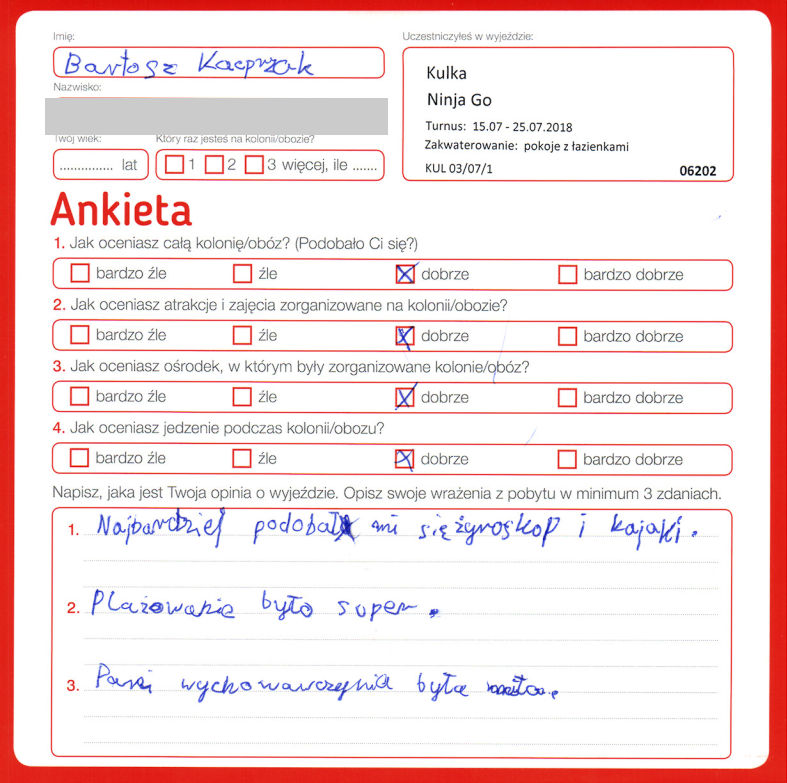 Imię:
Bartosz Kacprzak
Nazwisko:
Twój wiek:
Który raz jesteś na kolonii/obozie?
............... lat
1 2 3 więcej, ile .......
Uczestniczyłeś w wyjeździe:
Kulka
Ninja Go
Turnus: 15.07 - 25.07.2018
Zakwaterowanie: pokoje z łazienkami
KUL 03/07/1
06202
Ankieta
1. Jak oceniasz całą kolonię/obóz? (Podobało Ci się?)
bardzo źle źle dobrze bardzo dobrze
2. Jak oceniasz atrakcje i zajęcia zorganizowane na kolonii/obozie?
bardzo źle źle dobrze bardzo dobrze
3. Jak oceniasz ośrodek, w którym były zorganizowane kolonie/obóz?
bardzo źle źle dobrze bardzo dobrze
4. Jak oceniasz jedzenie podczas kolonii/obozu?
bardzo źle źle dobrze bardzo dobrze
Napisz, jaka jest Twoja opinia o wyjeździe. Opisz swoje wrażenia z pobytu w minimum 3 zdaniach.
1. Najbardziej podobał mi się żyroskop i kajaki.
2. Plażowanie było super.
3. Pani wychowawczynia była miła.